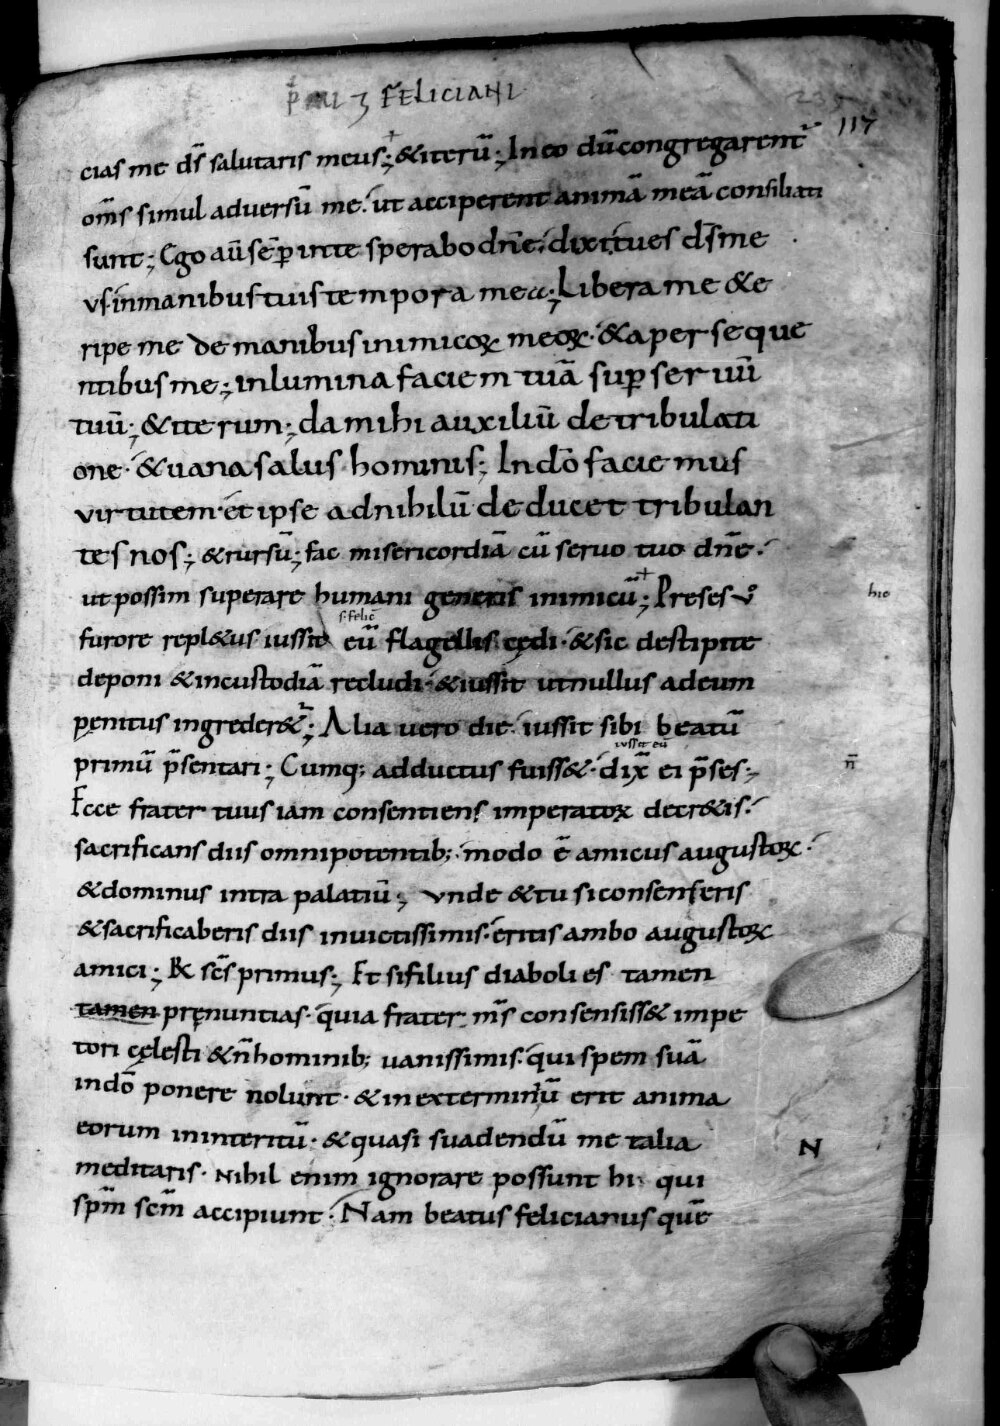 PMI ⁊ FELICIANI
117
cias me ds̄ salutaris meus; & iterū; In eo dū congregarent̄
om̄s simul adversū me. ut acciperent animā meā consiliati
sunt; Ego aū sēp in te sperabo dn̄e. dixi tu es ds̄ me
vs. in manibus tuis tempora mea; Libera me & e
ripe me de manibus inimicoꝝ meoꝝ. & a perseque
ntibus me; inlumina faciem tuā sup̄ servū
tuū; & iterum; da mihi auxiliū de tribulati
one. & vana salus hominis; In dō faciemus
virtutem. et ipse ad nihilū deducet tribulan
tes nos; & rursū; fac misericordiā cū servo tuo dn̄e.
ut possim superare humani generis inimicū; Preses v°
hic
s. felic̄
furore repl&us iussit eū flagellis cędi. & sic de stipite
deponi & in custodiā recludi. & iussit ut nullus ad eum
pęnitus ingreder&ur; Alia vero die. iussit sibi beatū
iussit eū
primū p̄sentari; Cumq; adductus fuiss&. dix̄ ei p̄ses;
n̄
Ecce frater tuus iam consentiens imperatoꝝ decr&is.
sacrificans diis omnipotentib;. modo ē amicus augustoꝝ.
& dominus intra palatiū; Vnde & tu si consenseris
& sacrificaberis diis invictissimis. eritis ambo augustoꝝ
amici; R̄ sc̄s primus; Et si filius diaboli es tamen
tamen pręnuntias. quia frater m̄s consensiss& impe
tori cęlesti & n̄ hominib; vanissimis. qui spem suā
in dō ponere nolunt. & in exterminiū erit anima
eorum in interitū. & quasi suadendū me talia
N
meditaris. Nihil enim ignorare possunt hi qui
sp̄m sc̄m accipiunt. Nam beatus felicianus quē